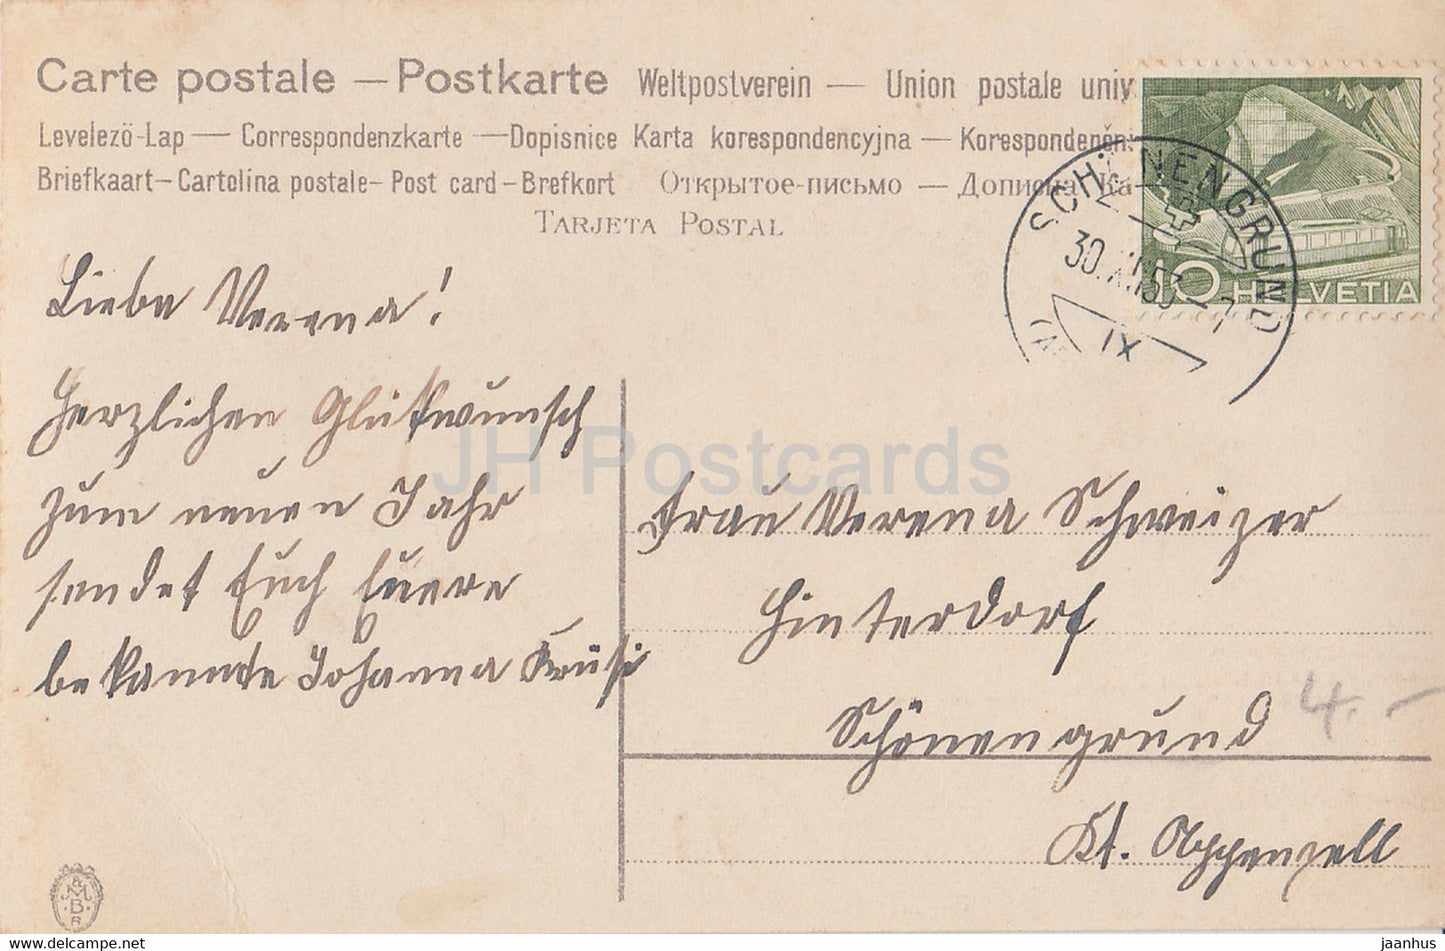 Carte postale — Postkarte Weltpostverein — Union postale univ
Levelező-Lap — Correspondenzkarte — Dopisnice Karta korespondencyjna — Korespondenčn
Briefkaart – Cartolina postale – Post card – Brefkort Открытое-письмо — Дописна Ка
TARJETA POSTAL
SCHÖNENGRUND
30.XII.53–7
IX
10 HELVETIA
Liebe Verena!
Herzlichen Glükwunsch
zum neuen Jahr
sendet Euch Euere
bekannte Johanna Krüsi
Frau Verena Schweizer
Hinterdorf
Schönengrund
4.-
Kt. Appenzell
JH Postcards
A
M
B
R
www.delcampe.net
jaanhus